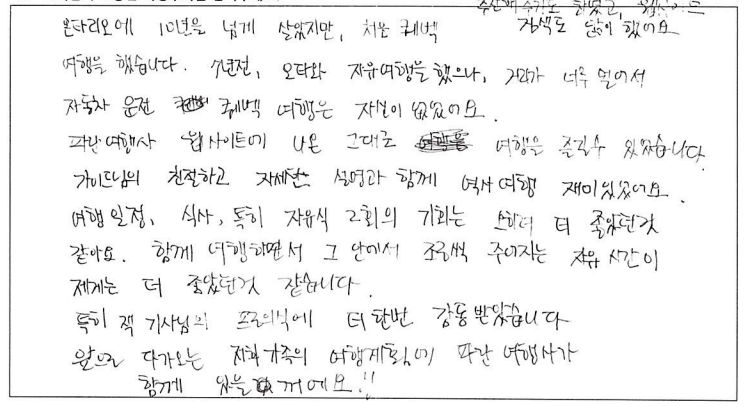 온타리오에 10년을 넘게 살았지만, 처음 퀘벡 검색도 많이 했어요
여행을 했습니다. 7년전, 오타와 자유여행을 했으나, 거리가 너무 멀어서
자동차 운전 퀘벡 여행은 자신이 없었어요.
파란여행사 웹사이트에 나온 그대로 여행을 즐길수 있었습니다.
가이드님의 친절하고 자세한 설명과 함께 역사 여행 재미있었어요.
여행일정, 식사, 특히 자유식 2회의 기회는 더 좋았던것
같아요. 함께 여행하면서 그 안에서 조금씩 주어지는 자유 시간이
제게는 더 좋았던것 같습니다.
특히 잭 기사님의 프로의식에 더한번 감동받았습니다
앞으로 다가오는 저희가족의 여행계획에 파란 여행사가
함께 있을 꺼에요!!